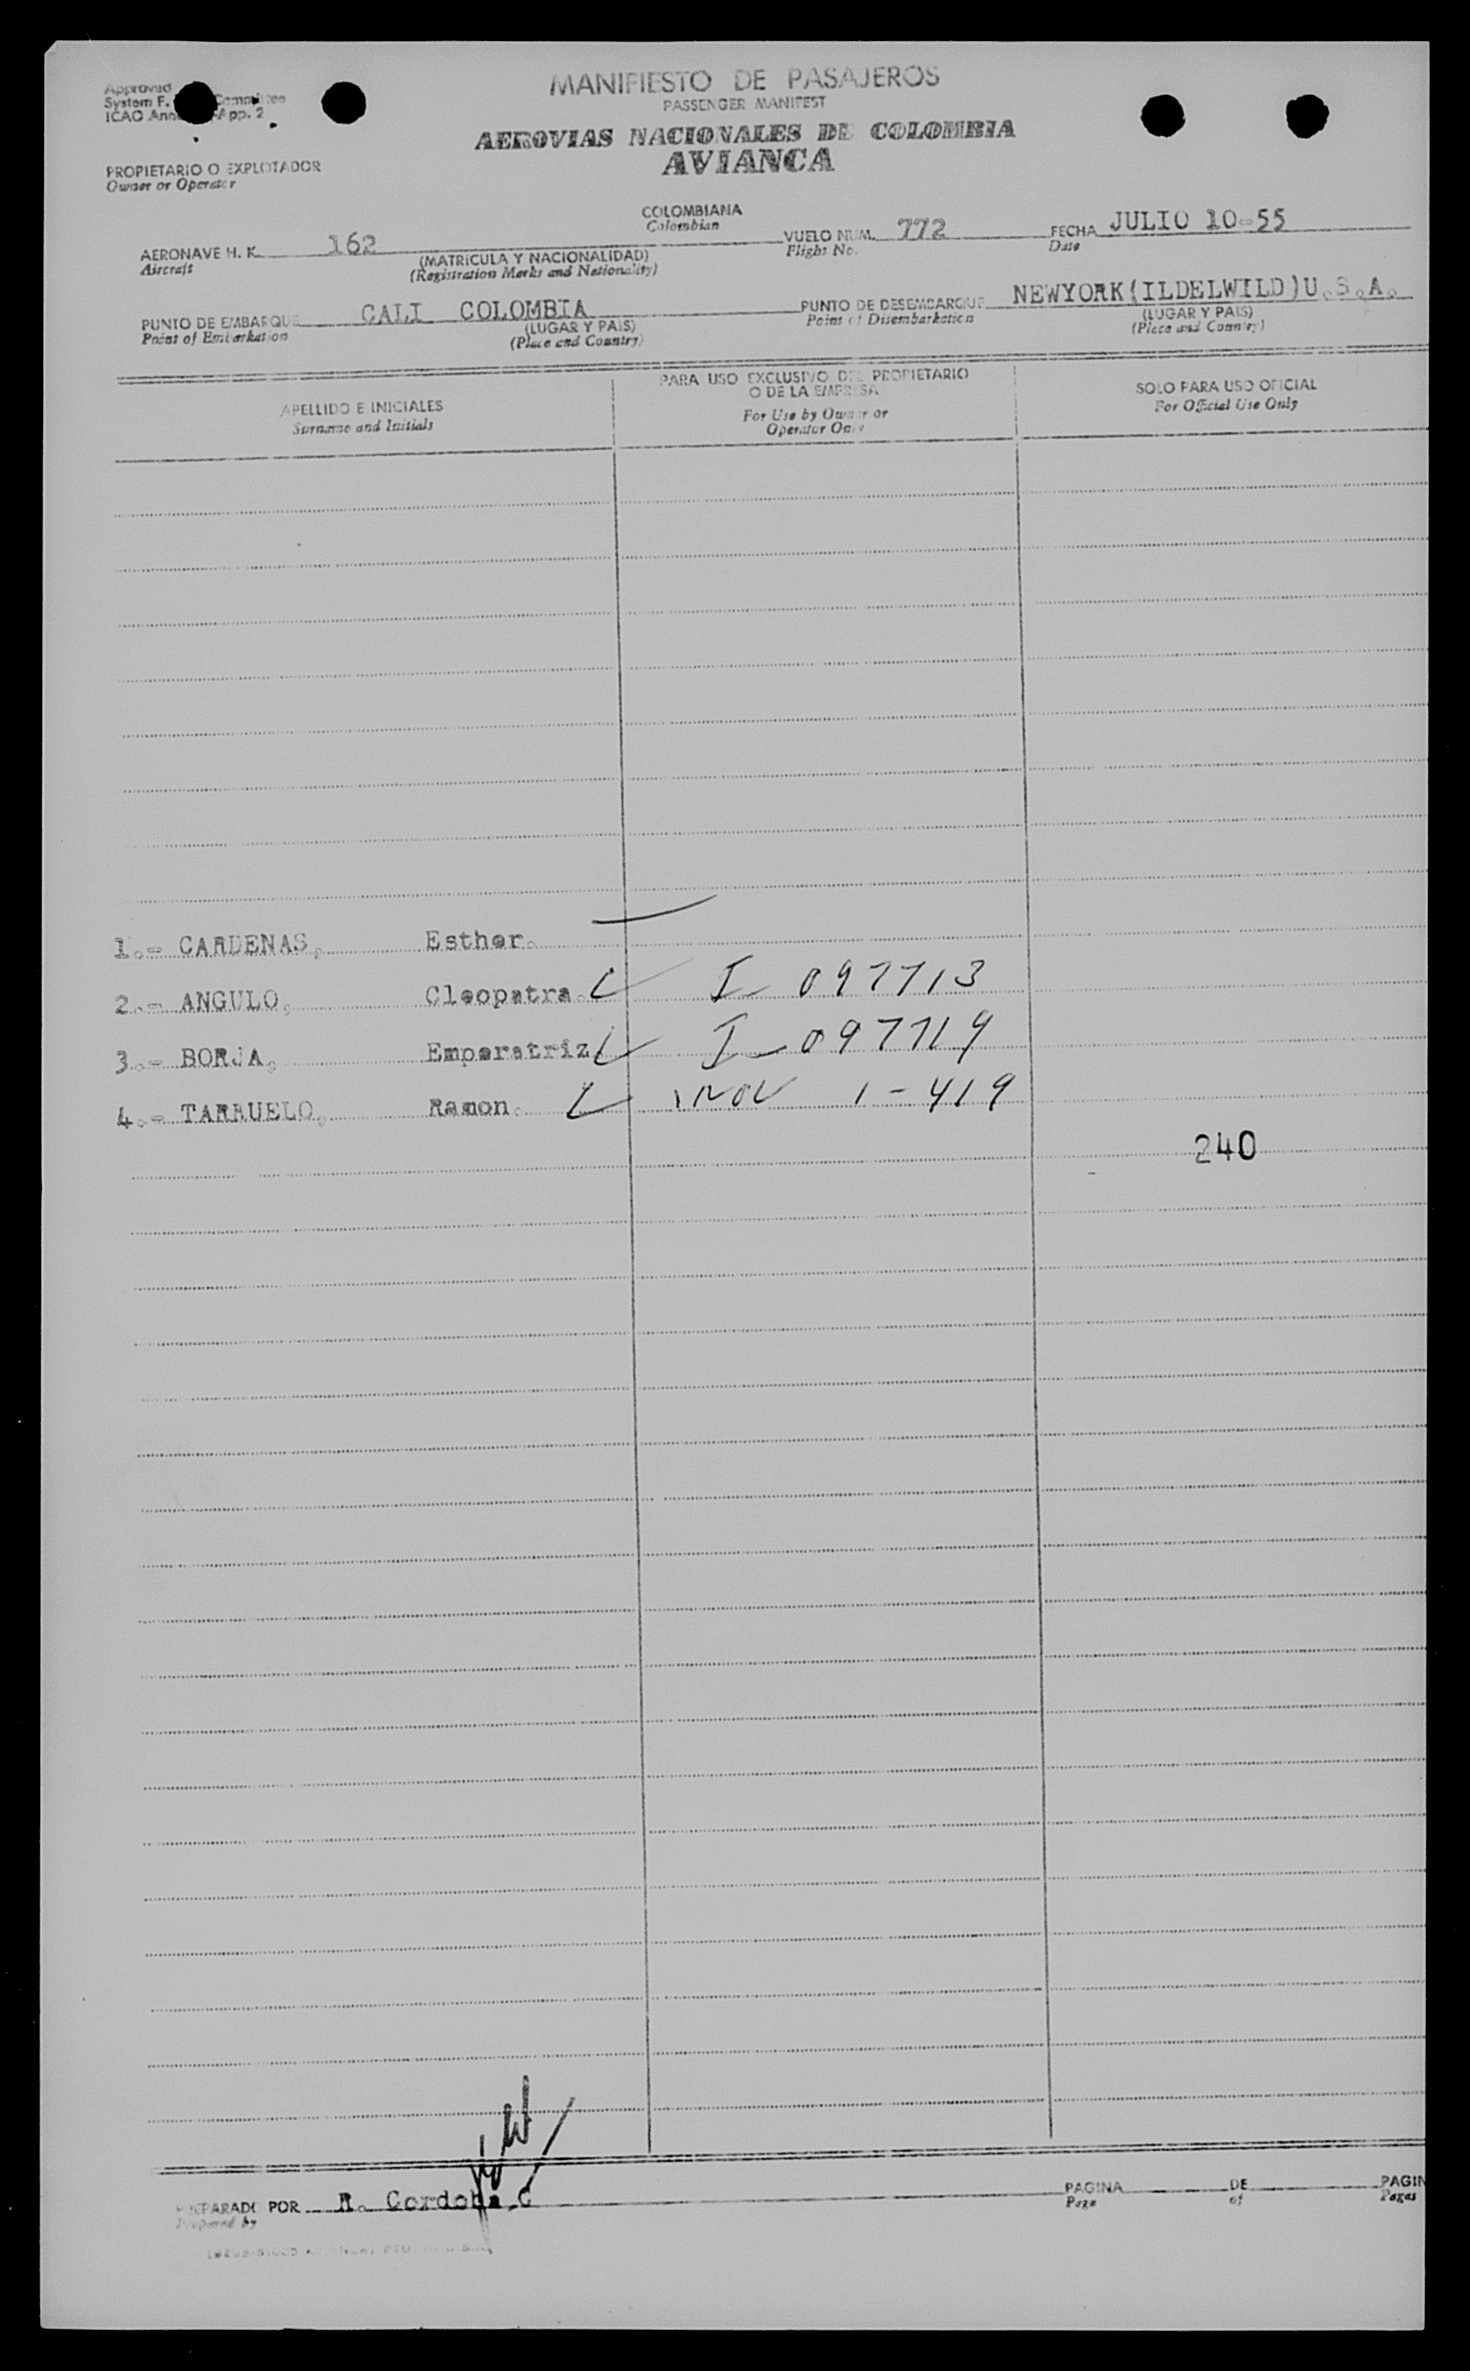 MANIFIESTO DE PASAJEROS
PASSENGER MANIFEST
AEROVIAS NACIONALES DE COLOMBIA
AVIANCA
Approved
System F. Committee
ICAO App. 2
PROPIETARIO O EXPLOTADOR
Owner or Operator
COLOMBIANA
Colombian
AERONAVE H. K. 162 VUELO NUM. 772 FECHA JULIO 10-55
Aircraft (MATRICULA Y NACIONALIDAD) Flight No. Date
(Registration Marks and Nationality)
PUNTO DE EMBARQUE CALI COLOMBIA PUNTO DE DESEMBARQUE NEWYORK(ILDELWILD)U.S.A.
Point of Embarkation (LUGAR Y PAIS) Point of Disembarkation (LUGAR Y PAIS)
(Place and Country) (Place and Country)
APELLIDO E INICIALES
Surname and Initials
PARA USO EXCLUSIVO DEL PROPIETARIO
O DE LA EMPRESA
For Use by Owner or
Operator Only
SOLO PARA USO OFICIAL
For Official Use Only
1.- CARDENAS, Esther.
2.- ANGULO, Cleopatra. I- 097713
3.- BORJA, Emperatriz I- 097719
4.- TARRUELO, Ramon. 1-419
240
PREPARADO POR R. Cordoba C
Prepared by
PAGINA DE PAGIN
Page of Pages